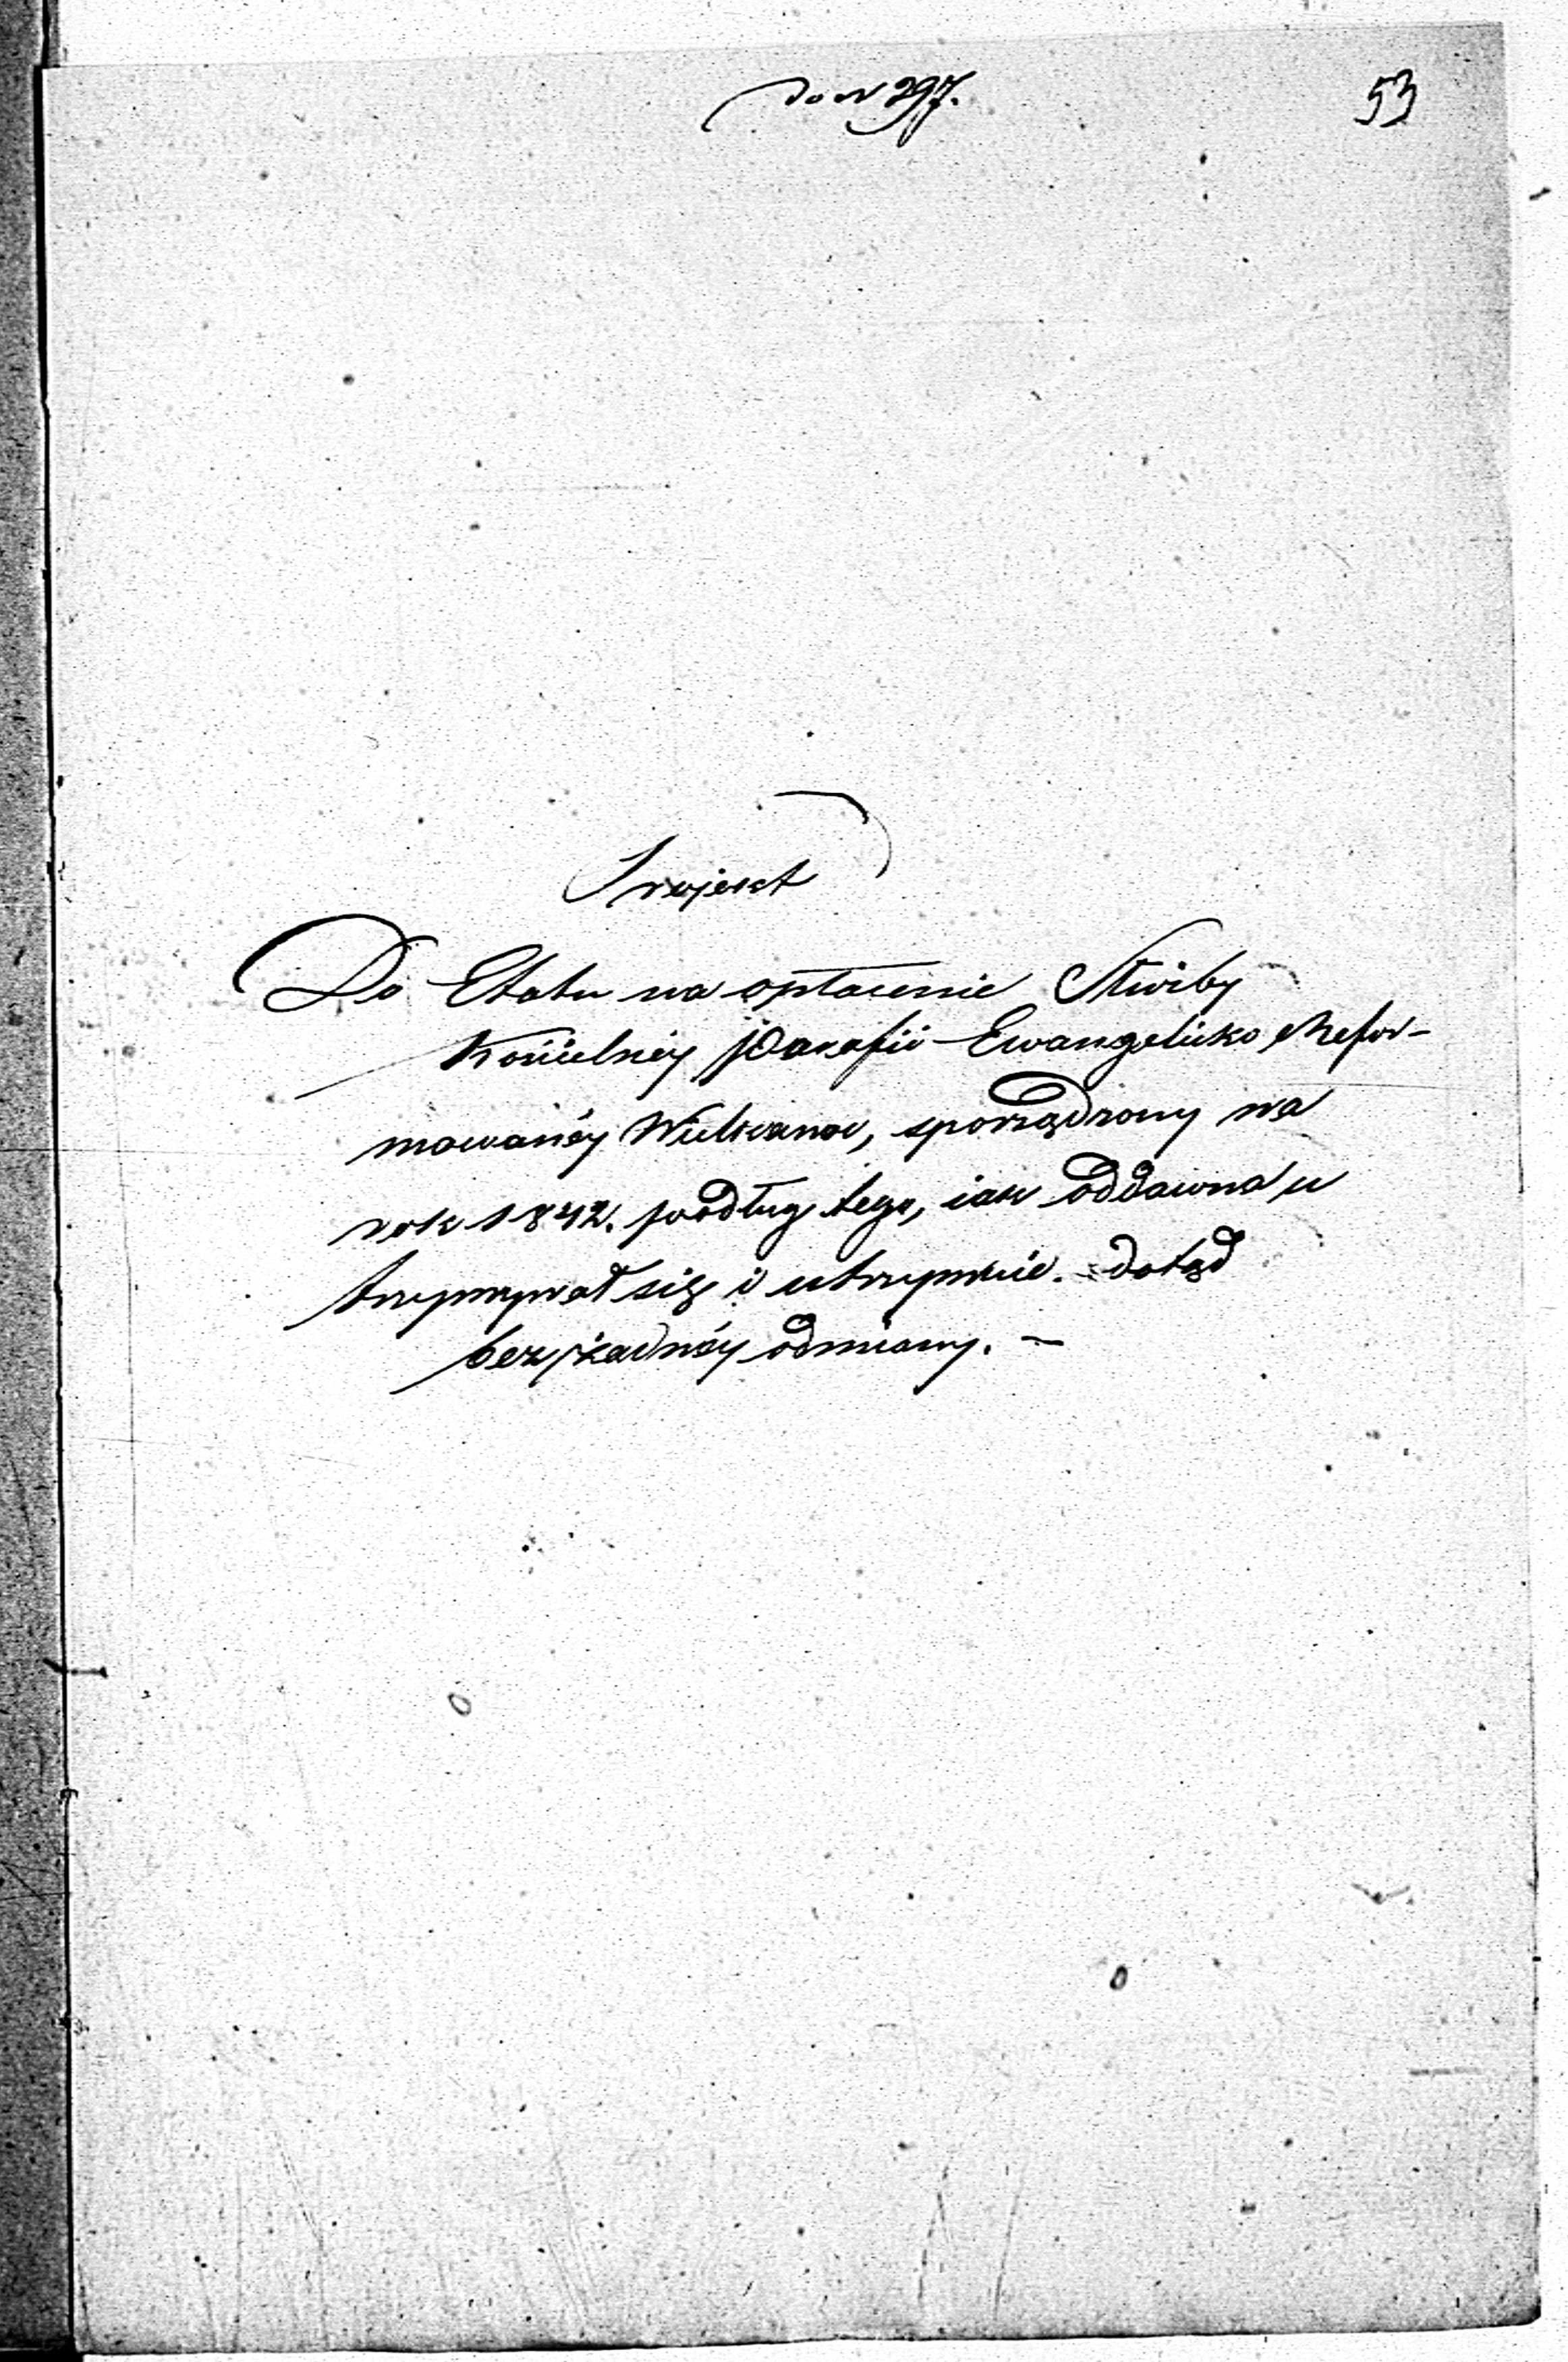 do N 297.
53
Projekt
Do Etatu na opłacenie Służby
Kościelnéy Parafii Ewangelicko Refor-
mowanéy, sporządzony na
rok 1842. podług tego, iak oddawna u
trzymywał się i utrzymuie. dotąd
bez żadnéy odmiany. —